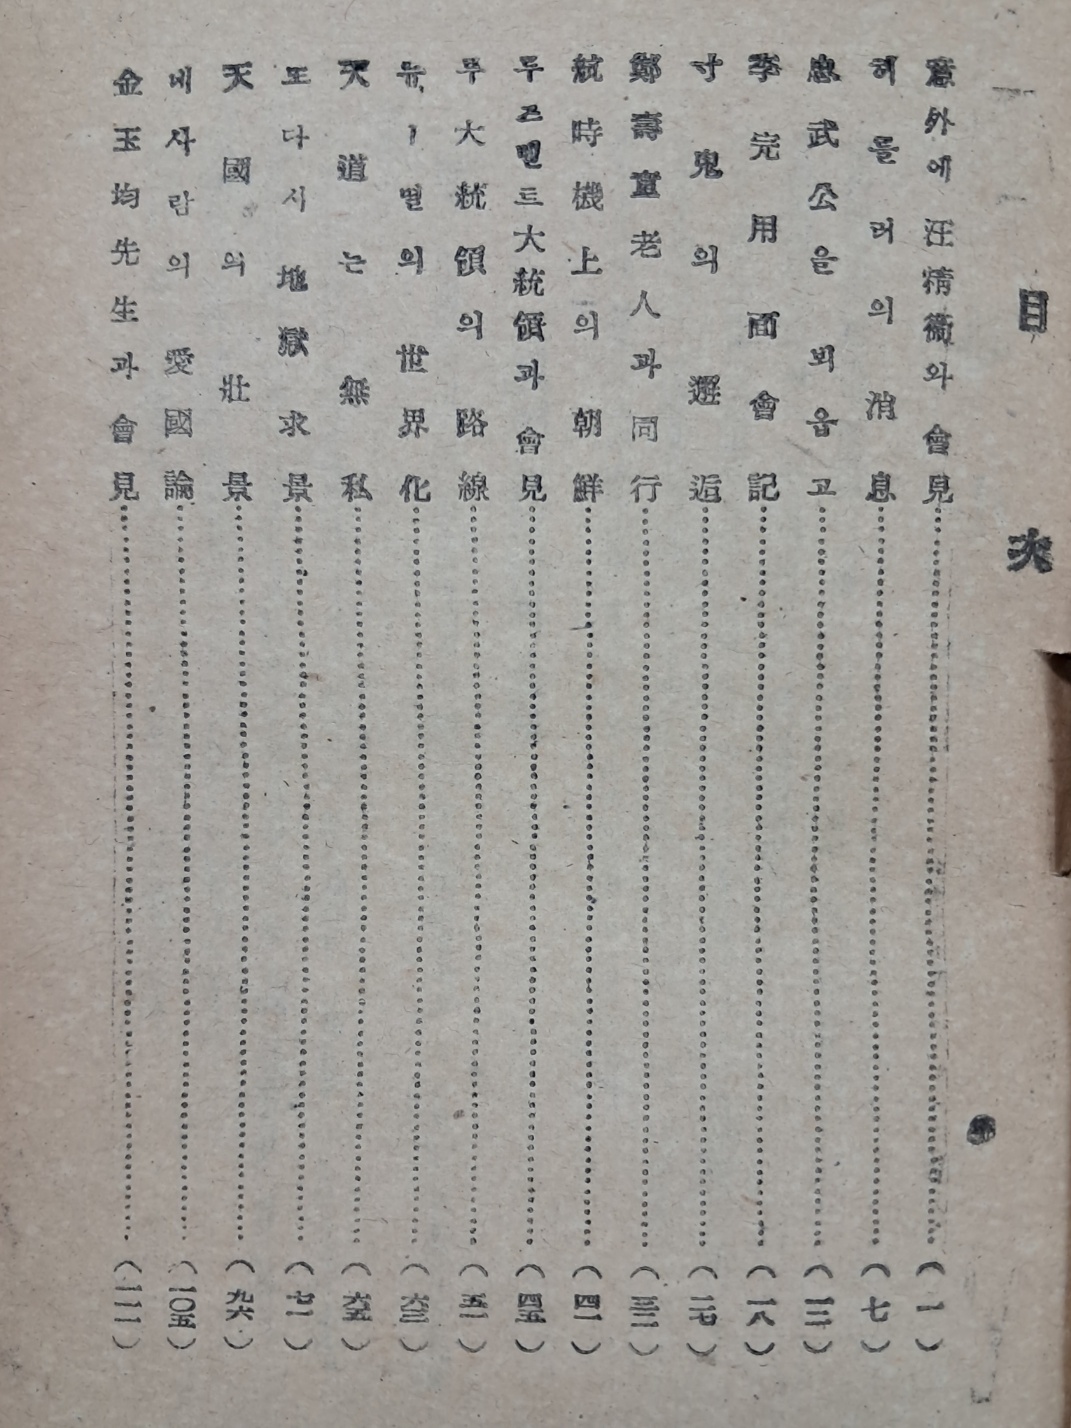 目次
意外에 汪精衛와 會見……(一)
허틀러의 消息……(七)
忠武公을 뵈옵고……(一二)
李完用面會記……(一八)
寸鬼의 邂逅……(二七)
鄭壽童老人과 同行……(三二)
航時機上의 朝鮮……(四一)
루즈벨트大統領과 會見……(四五)
루大統領의 路線……(五一)
뉴ー멸의 世界化……(六三)
天道는 無私……(六五)
또다시 地獄求景……(七一)
天國의 壯景……(九六)
네사람의 愛國論……(一〇五)
金玉均先生과 會見……(一一一)